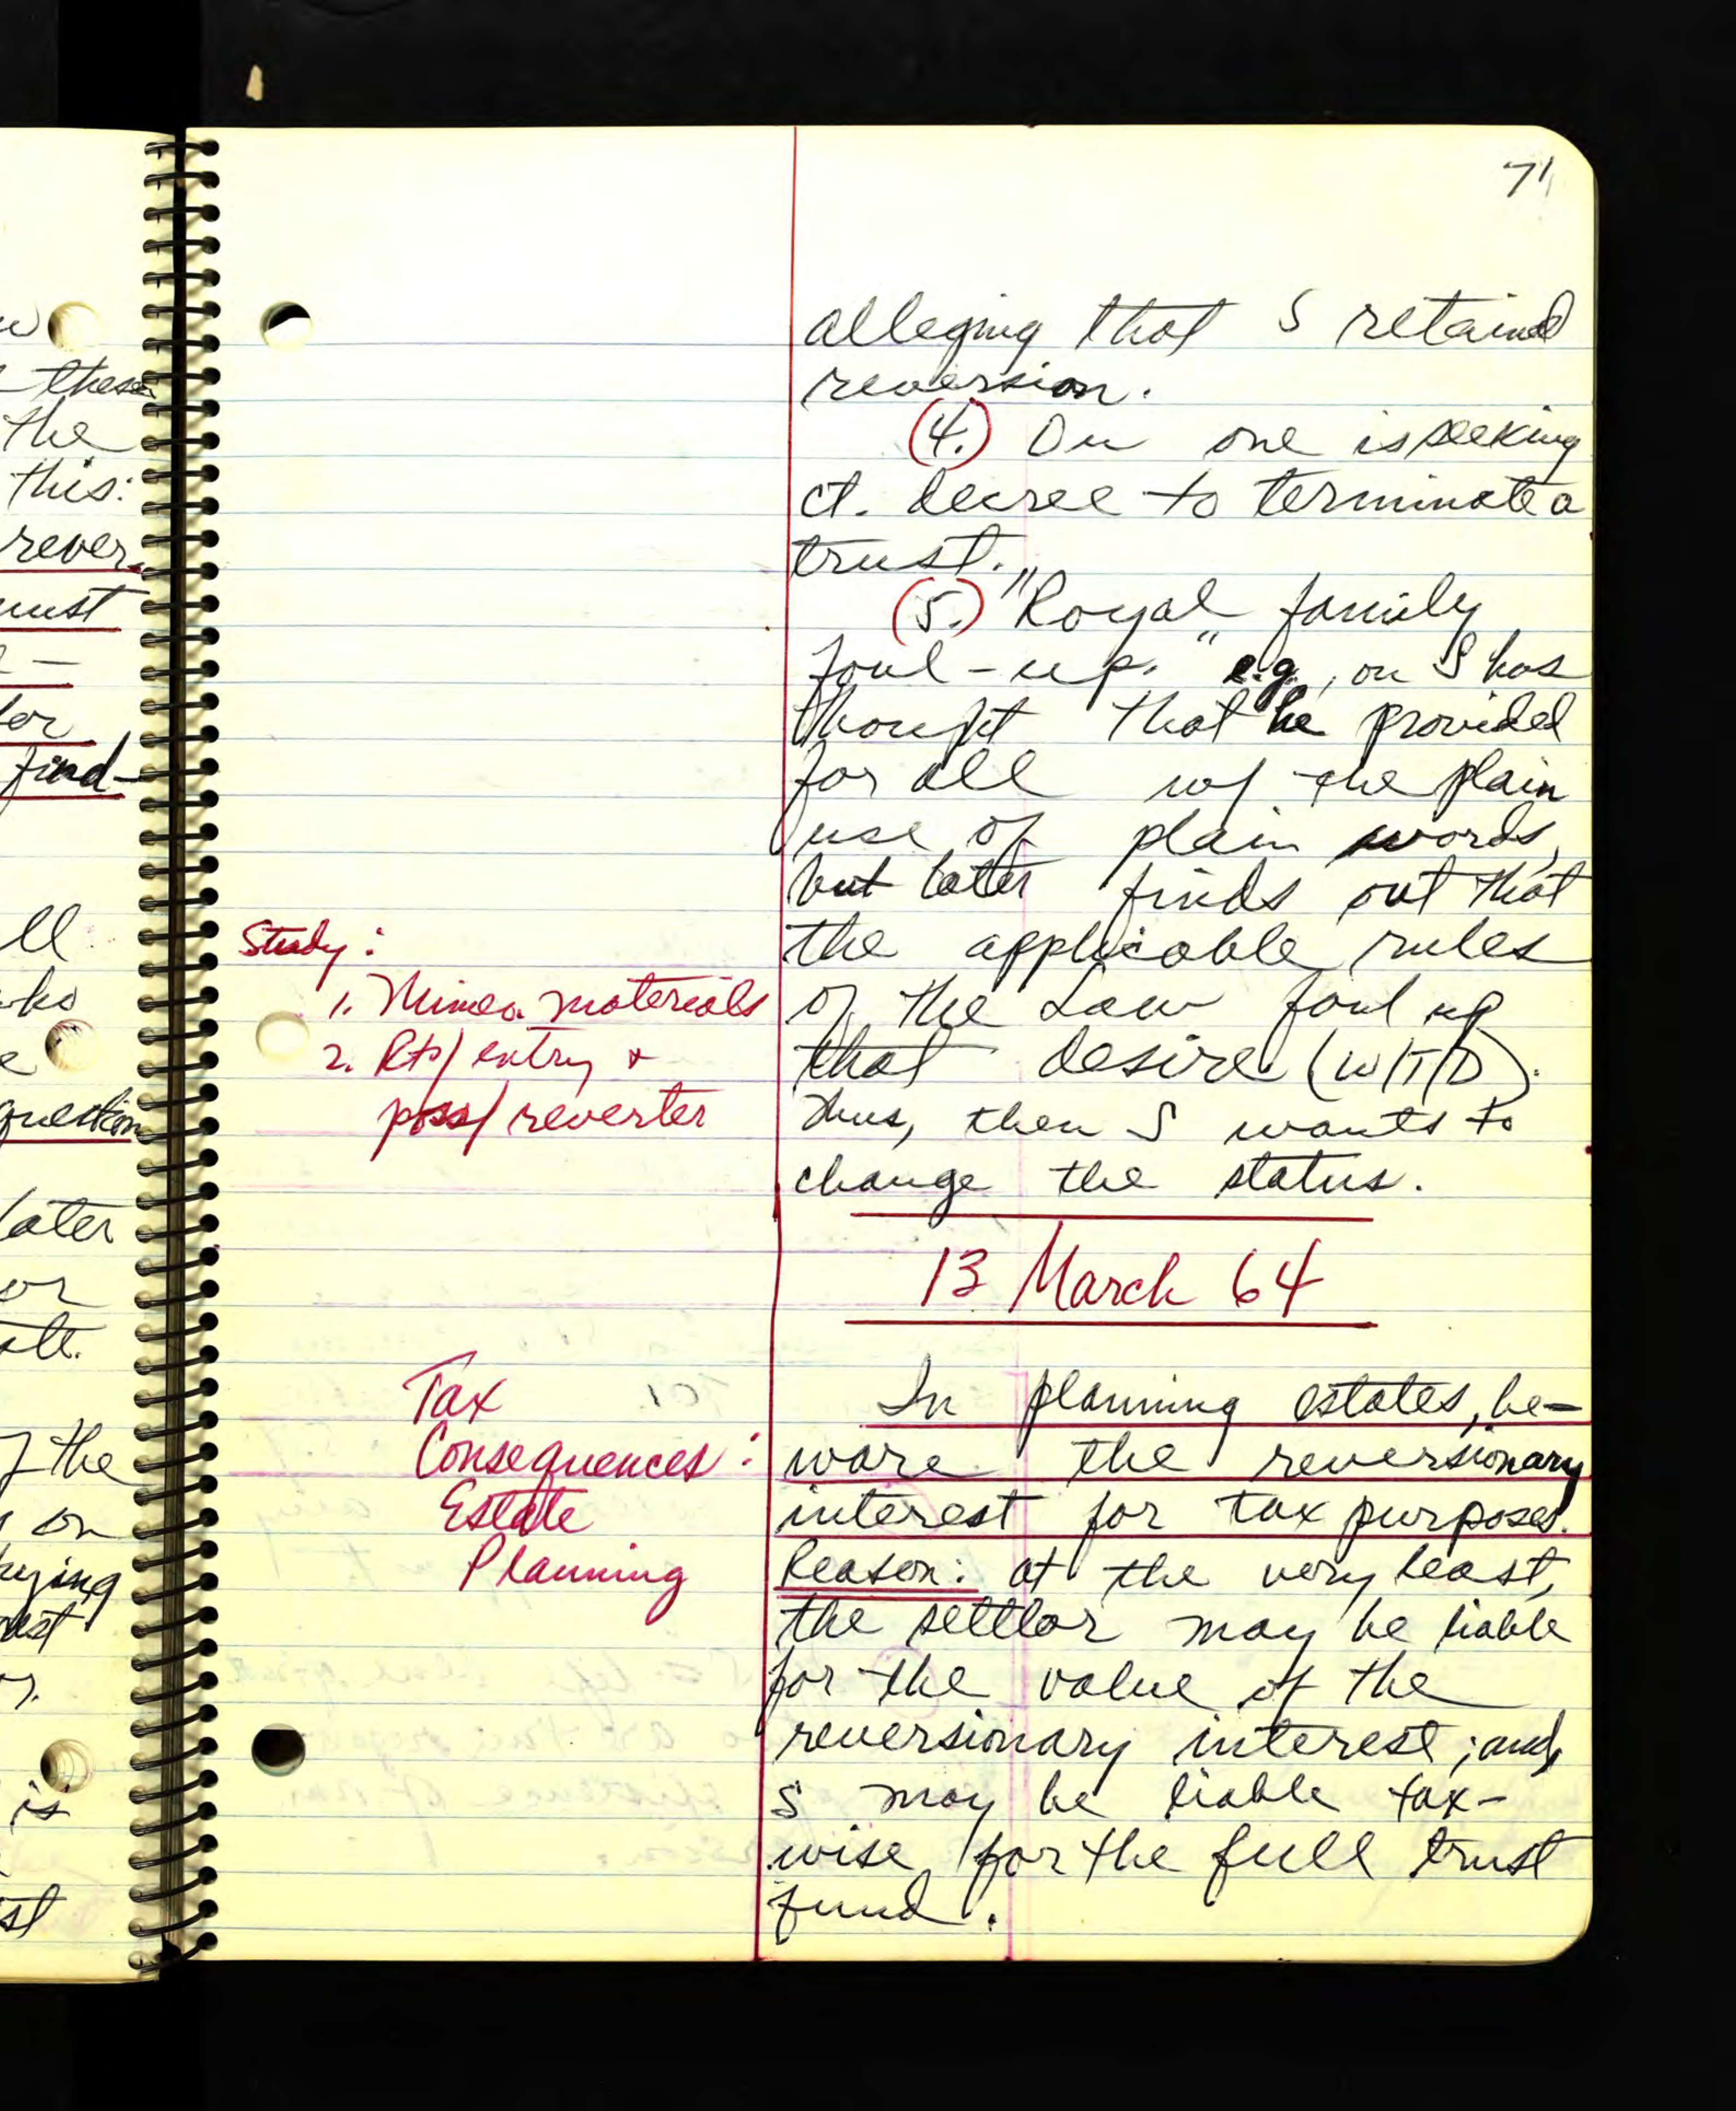 71
alleging that S retained
reversion.
(4.) On one is seeking
ct. decree to terminate a
trust.
(5.) "Royal family
foul-up." e.g., on S has
thought that he provided
for all w/ the plain
use of plain words,
but later finds out that
the applicable rules
of the Law foul up
that desire (W/T/D).
Thus, then S wants to
change the status.
Study:
1. Mimeo. materials
2. Rts/ entry +
poss/ reverter
13 March 64
Tax
Consequences:
Estate
Planning
In planning estates, be-
ware the reversionary
interest for tax purposes.
Reason: at the very least,
the settlor may be liable
for the value of the
reversionary interest; and,
S may be liable tax-
wise for the full trust
fund.
these
the
this:
rever-
must
for
find-
question
later
or
the
on
is